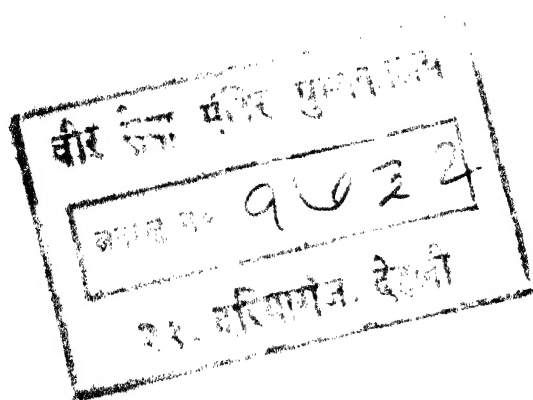 वीर सेवा मंदिर पुस्तकालय
१७३२
२१, दरियागंज, देहली